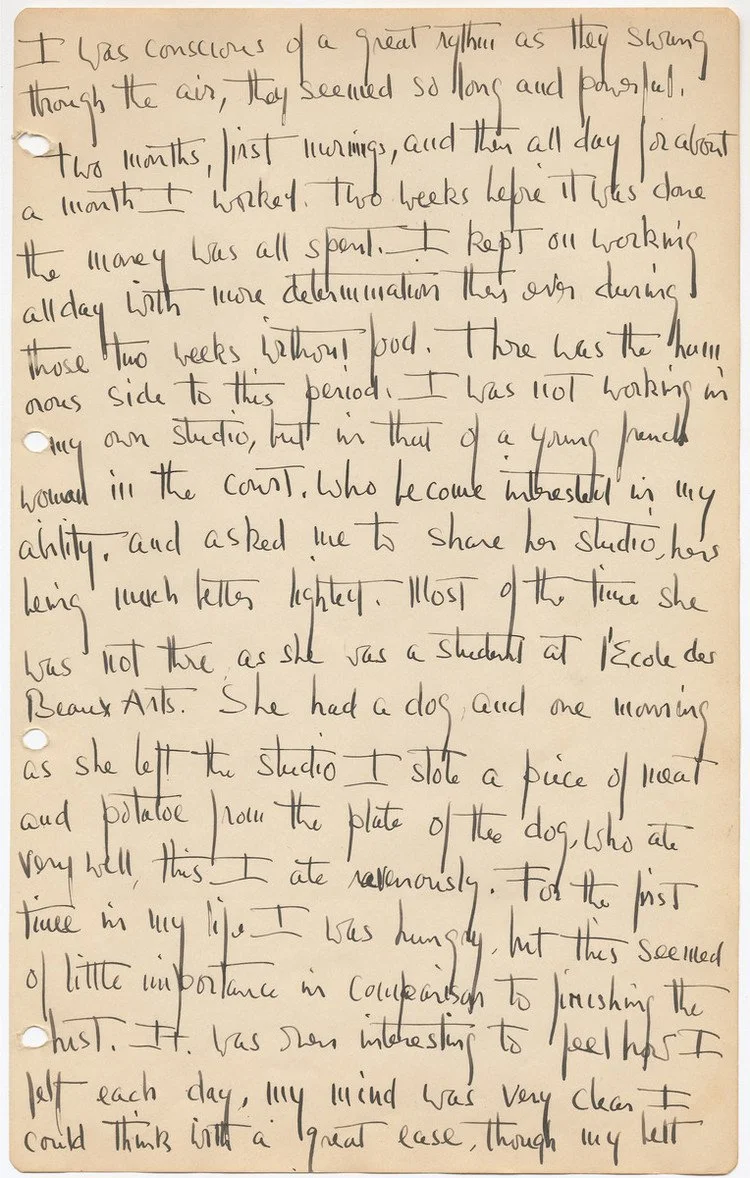 I was conscious of a great rythm as they swung
through the air, they seemed so long and powerful.
Two months, first mornings, and then all day for about
a month I worked. Two weeks before it was done
the money was all spent. I kept on working
all day with more determination then ever during
those two weeks without food. There was the hum
orous side to this period. I was not working in
my own studio, but in that of a young french
woman in the court. Who become interested in my
ability. and asked me to share her studio, hers
being much better lighted. Most of the time she
was not there, as she was a student at l'Ecole des
Beaux Arts. She had a dog, and one morning
as she left the studio I stole a piece of meat
and potatoe from the plate of the dog, who ate
very well, this I ate ravenously. For the first
time in my life I was hungry, but this seemed
of little importance in comparison to finishing the
bust. It was even interesting to feel how I
felt each day, my mind was very clear, I
could think with a great ease, though my belt